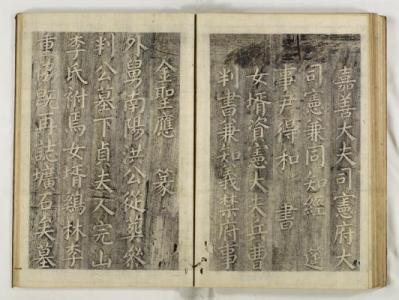 嘉善大夫司憲府大
司憲兼同知經筵
事尹得和 書
女壻資憲大夫兵曹
判書兼知義禁府事
金聖應 篆
外舅南陽洪公從葬叅
判公墓下貞夫人完山
李氏祔焉女壻鷄林李
重協既再誌壙石矣墓